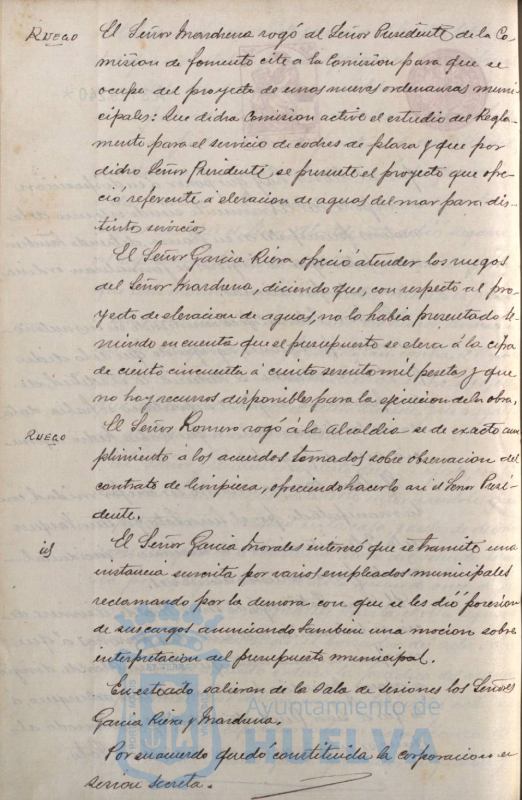 RUEGO
El Señor Marchena rogó al Señor Presidente de la Co-
misión de fomento cite a la Comision para que se
ocupe del proyecto de unas nuevas ordenanzas muni-
cipales: Que dicha Comision active el estudio del Regla-
mento para el servicio de coches de plaza y que por
dicho Señor Presidente, se presente el proyecto que ofre-
ció referente á elevacion de aguas del mar para dis-
tintos servicios
El Señor Garcia Riera ofreció atender los ruegos
del Señor Marchena, diciendo que, con respecto al pro-
yecto de elevacion de aguas, no lo habia presentado te-
niendo en cuenta que el presupuesto se eleva á la cifra
de ciento cincuenta á ciento sesenta mil pesetas y que
no hay recursos disponibles para la ejecucion de la obra.
RUEGO
El Señor Romero rogó á la Alcaldia se de exacto cum-
plimiento á los acuerdos tomados sobre observacion del
contrato de limpieza, ofreciendo hacerlo asi el Señor Presi-
dente.
id
El Señor Garcia Morales interesó que se tramite una
instancia suscrita por varios empleados municipales
reclamando por la demora con que se les dió posesion
de sus cargos anunciando tambien una mocion sobre
interpretacion del presupuesto municipal.
En este acto, salieron de la Sala de sesiones los Señores
Garcia Riera y Marchena.
Por su acuerdo quedó constituida la corporacion en
sesion secreta.
Ayuntamiento de
HUELVA